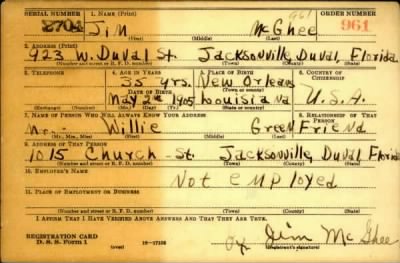 SERIAL NUMBER 1. NAME (Print) ORDER NUMBER
2704 Jim McGhee 961 961
(First) (Middle) (Last)
2. ADDRESS (Print)
922 W. Duval St. Jacksonville, Duval, Florida
(Number and street or R. F. D. number) (Town) (County) (State)
3. TELEPHONE 4. AGE IN YEARS 5. PLACE OF BIRTH 6. COUNTRY OF CITIZENSHIP
35 yrs. New Orleans
DATE OF BIRTH (Town or county)
May 1905 Louisiana U.S.A.
(Exchange) (No.) (Mo.) (Day) (Yr.) (State or country)
7. NAME OF PERSON WHO WILL ALWAYS KNOW YOUR ADDRESS 8. RELATIONSHIP OF THAT PERSON
Mr. Willie Green Friend
(Mr., Mrs., Miss) (First) (Middle) (Last)
9. ADDRESS OF THAT PERSON
1015 Church St. Jacksonville, Duval, Florida
(Number and street or R. F. D. number) (Town) (County) (State)
10. EMPLOYER'S NAME
Not employed
11. PLACE OF EMPLOYMENT OR BUSINESS
(Number and street or R. F. D. number) (Town) (County) (State)
I AFFIRM THAT I HAVE VERIFIED ABOVE ANSWERS AND THAT THEY ARE TRUE.
REGISTRATION CARD
D. S. S. Form 1 16-17105 Jim McGhee
(Registrant's signature)